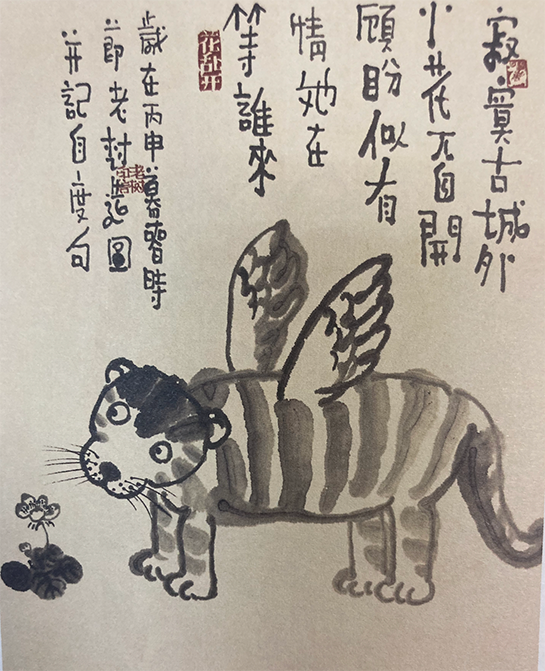 寂寞古城外
小花兀自開
顧盼似有
情她在
等誰來
花乱开
歲在丙申暮春時
節老圖
并記自度句